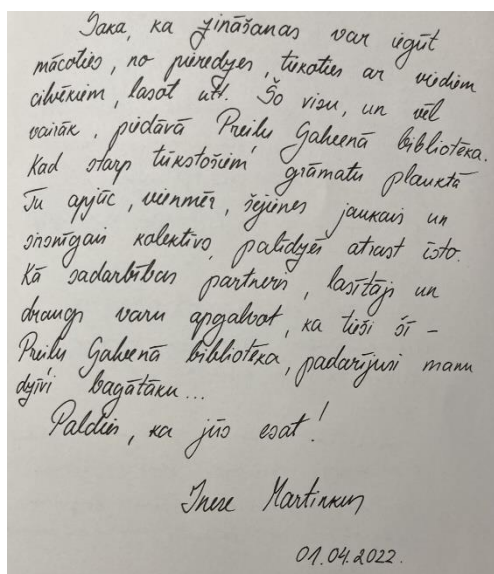 Saka, ka zināšanas var iegūt
mācoties, no pieredzes, tiekoties ar viediem
cilvēkiem, lasot utt. Šo visu, un vēl
vairāk, piedāvā Preiļu Galvenā bibliotēka.
Kad starp tūkstošiem grāmatu plauktā
Tu apjūc, vienmēr, šejienes jaukais un
sirsnīgais kolektīvs, palīdzēs atrast īsto.
Kā sadarbības partneris, lasītājs un
draugs varu apgalvot, ka tieši šī -
Preiļu Galvenā bibliotēka, padarījusi manu
dzīvi bagātāku...
Paldies, ka jūs esat!
Inese Martinkus
01.04.2022.